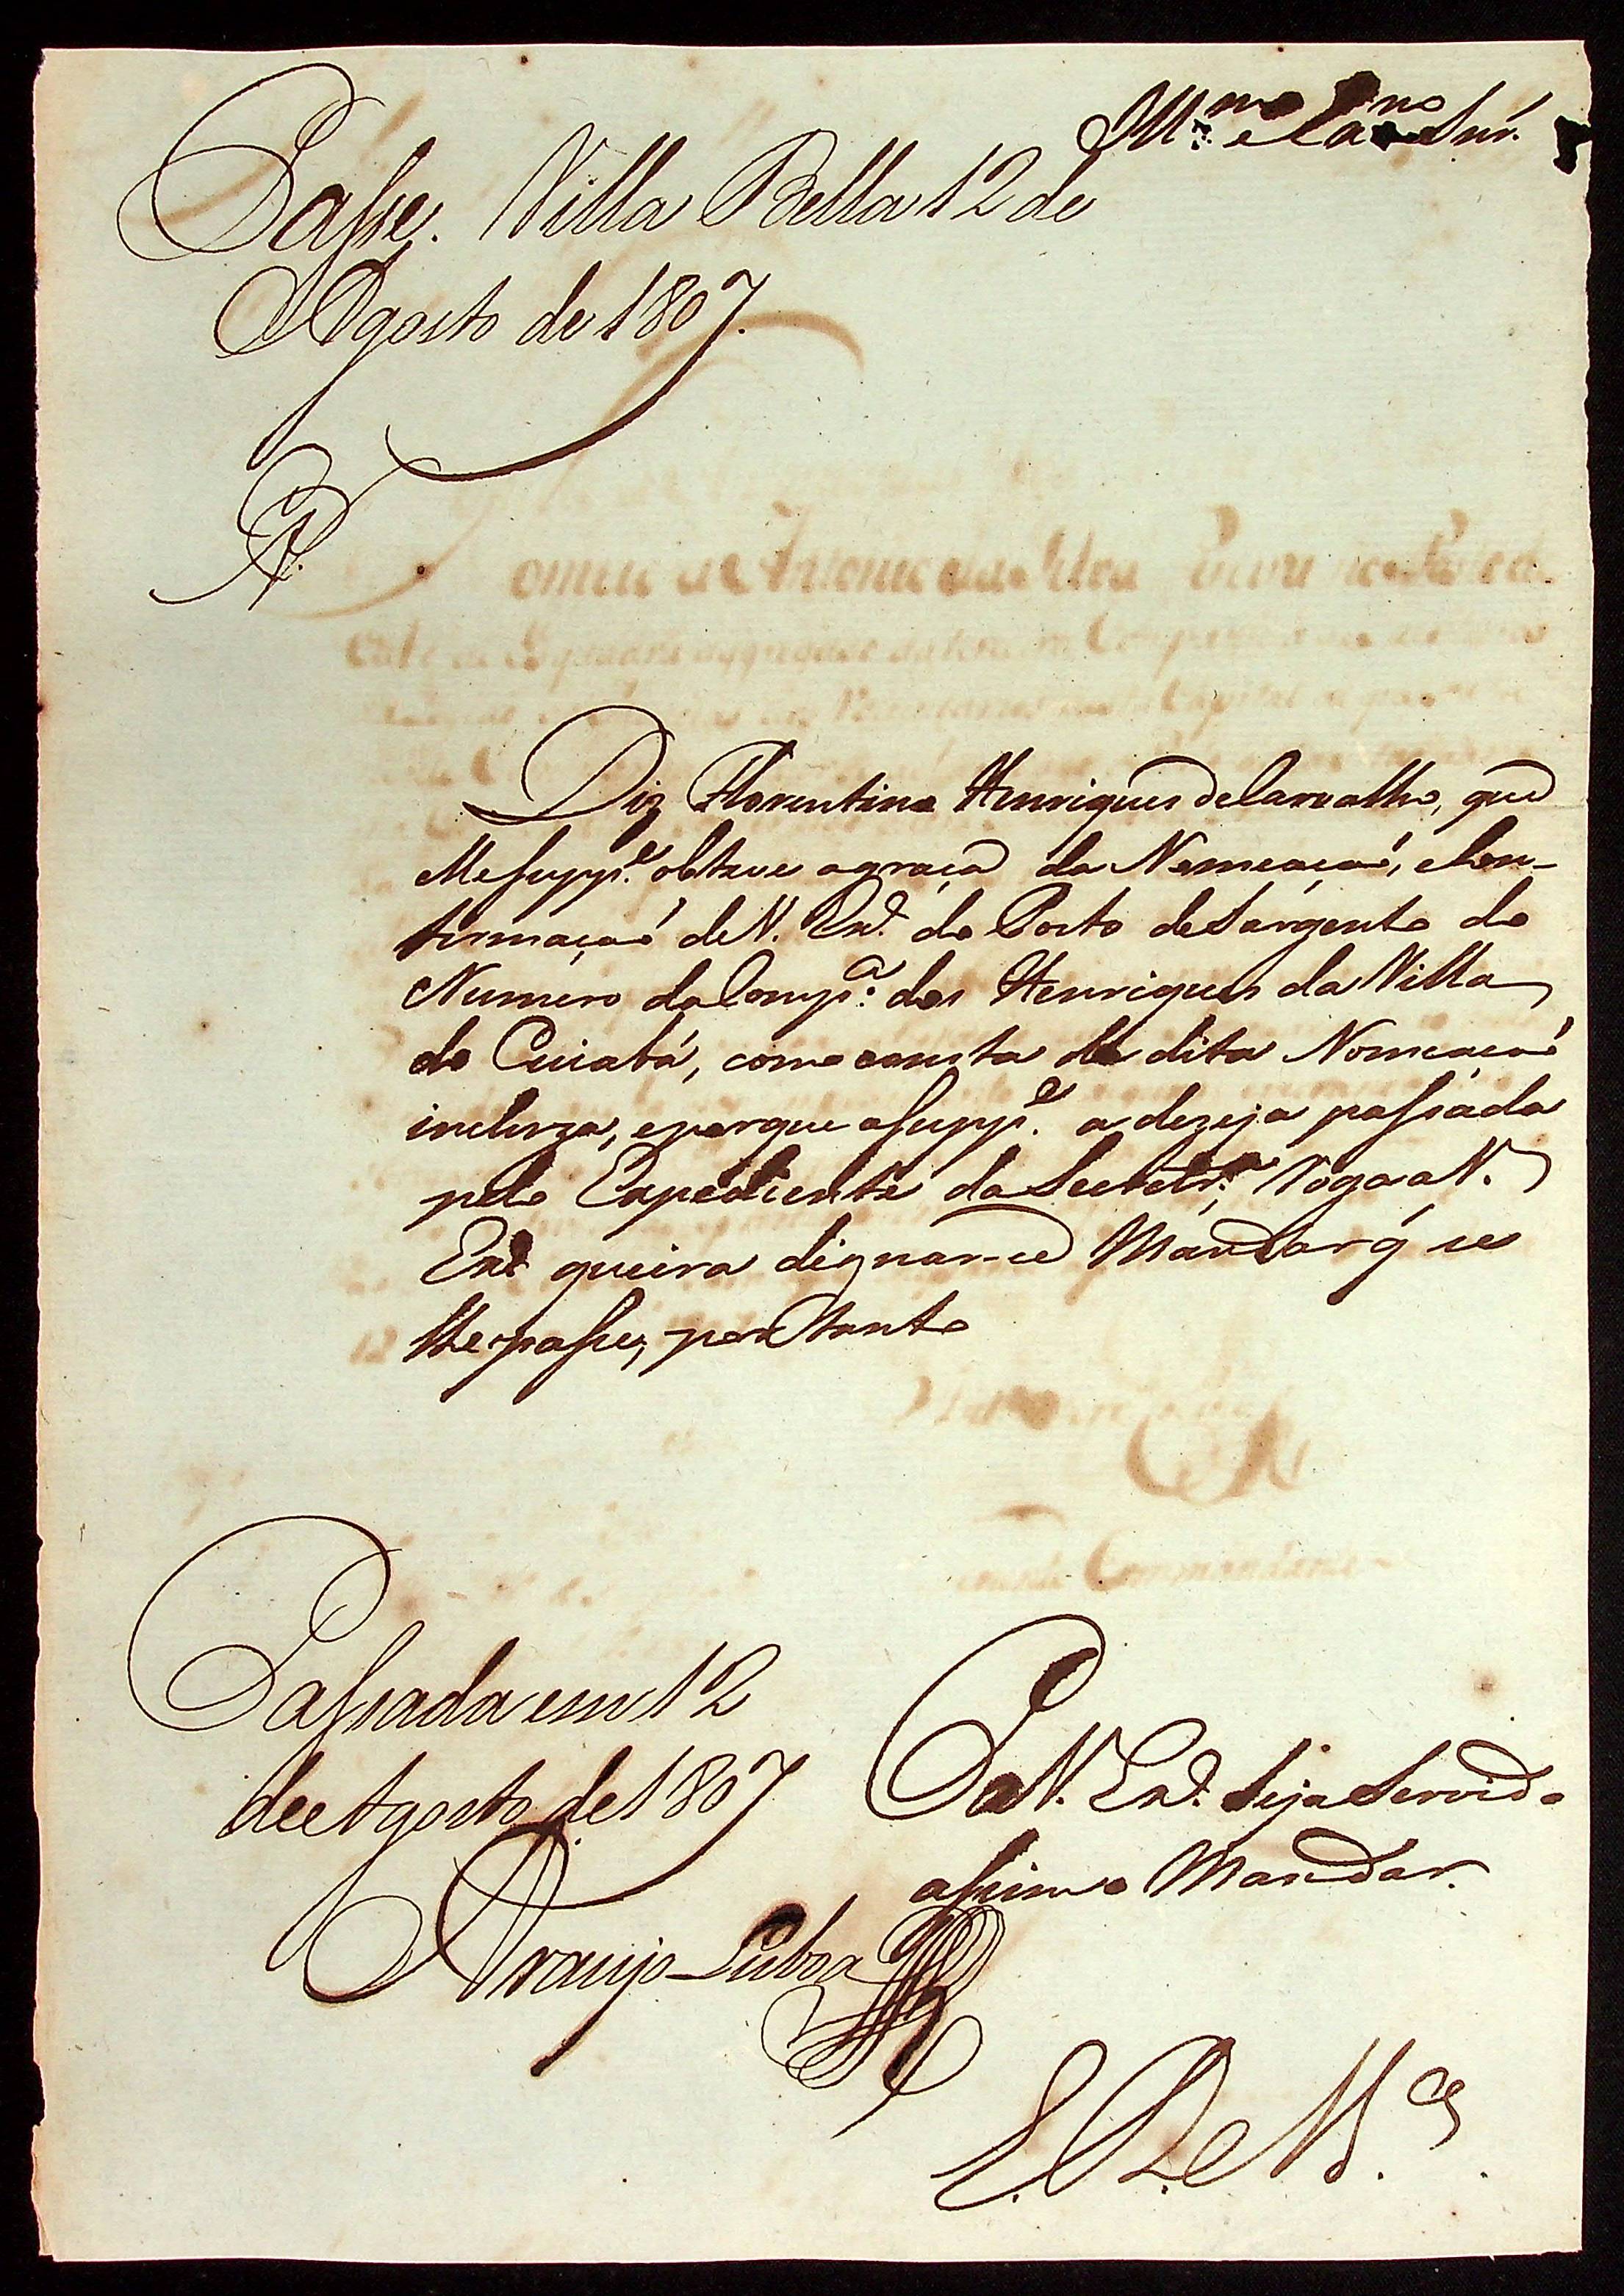 Ill.mo e Ex.mo Snr.
Passe. Villa Bella 12 de
Agosto de 1807.
Diz Florentino Henriques de Carvalho, que
elle supp.e obteve a graça da Nomeação, e Con-
firmação de V. Ex.a do Posto de Sargento do
Numero da Comp.a dos Henriques da Villa
do Cuiabá, como consta da dita Nomeação
incluza, e porque o supp.e a dezeja passada
pelo Expediente da Secretr.a Roga a V.
Ex.a queira dignar-se Mandar q̃ se
lhe passe, por tanto
P. a V. Ex.a Seja Servido
assim o Mandar.
E. R. M.ce
Passada em 12
de Agosto de 1807
Araujo Lisboa